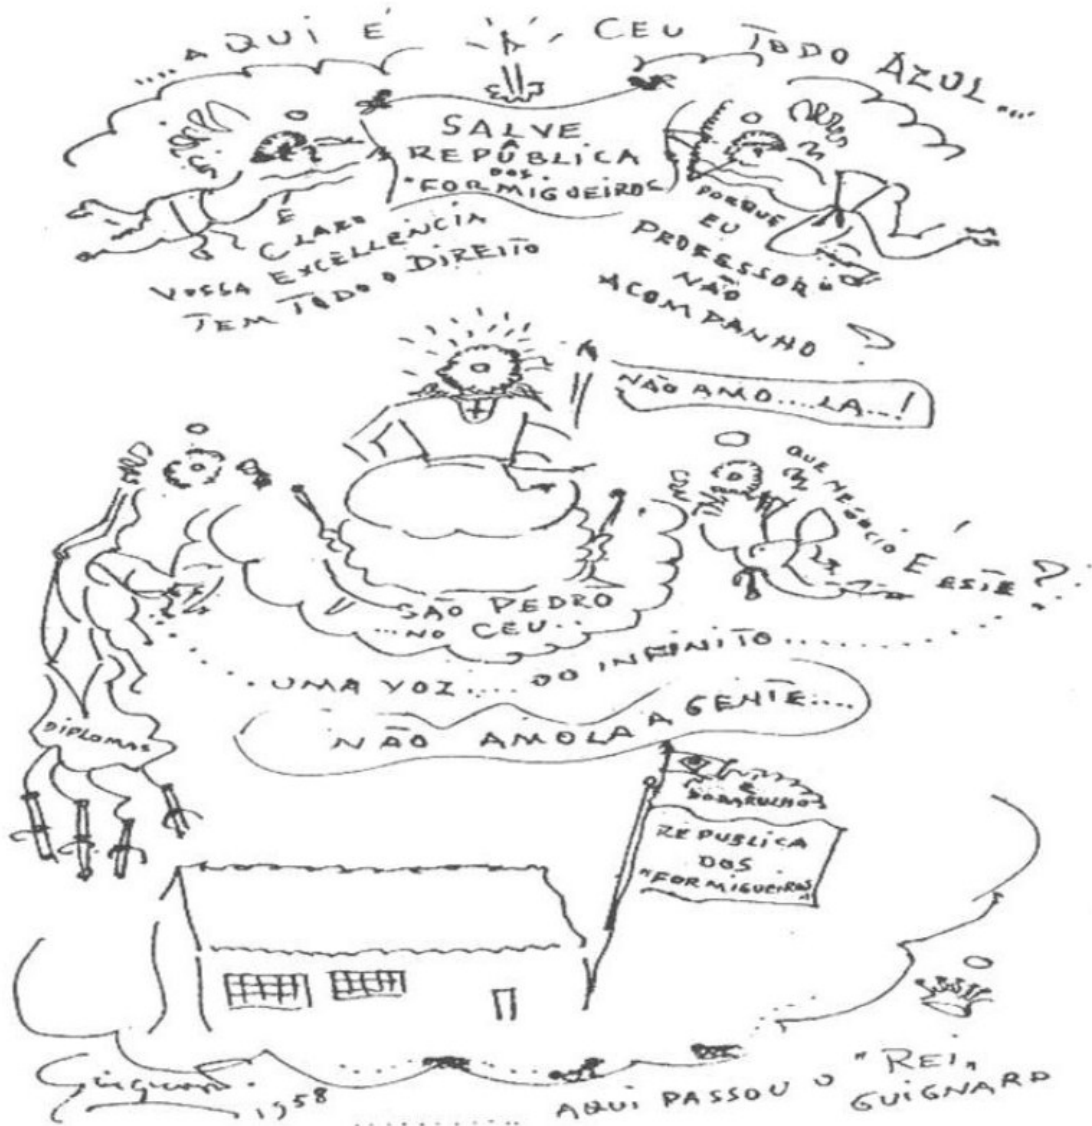 ....AQUI É CEU TODO AZUL....
SALVE
A
REPÚBLICA
DOS
"FORMIGUEIROS
É
CLARO
VOSSA EXCELLENCIA
TEM TODO O DIREITO
PORQUE
EU
PROFESSOR
NÃO
ACOMPANHO
?
NÃO AMO....LA...!
QUE NEGÓCIO É ESTE?
SÃO PEDRO
...NO CEU...
UMA VOZ.... DO INFINITO
NÃO AMOLA A GENTE....
DIPLOMAS
É
DO BARULHO
REPUBLICA
DOS
"FORMIGUEIROS"
Guignard.
1958
........... AQUI PASSOU O "REI"
GUIGNARD